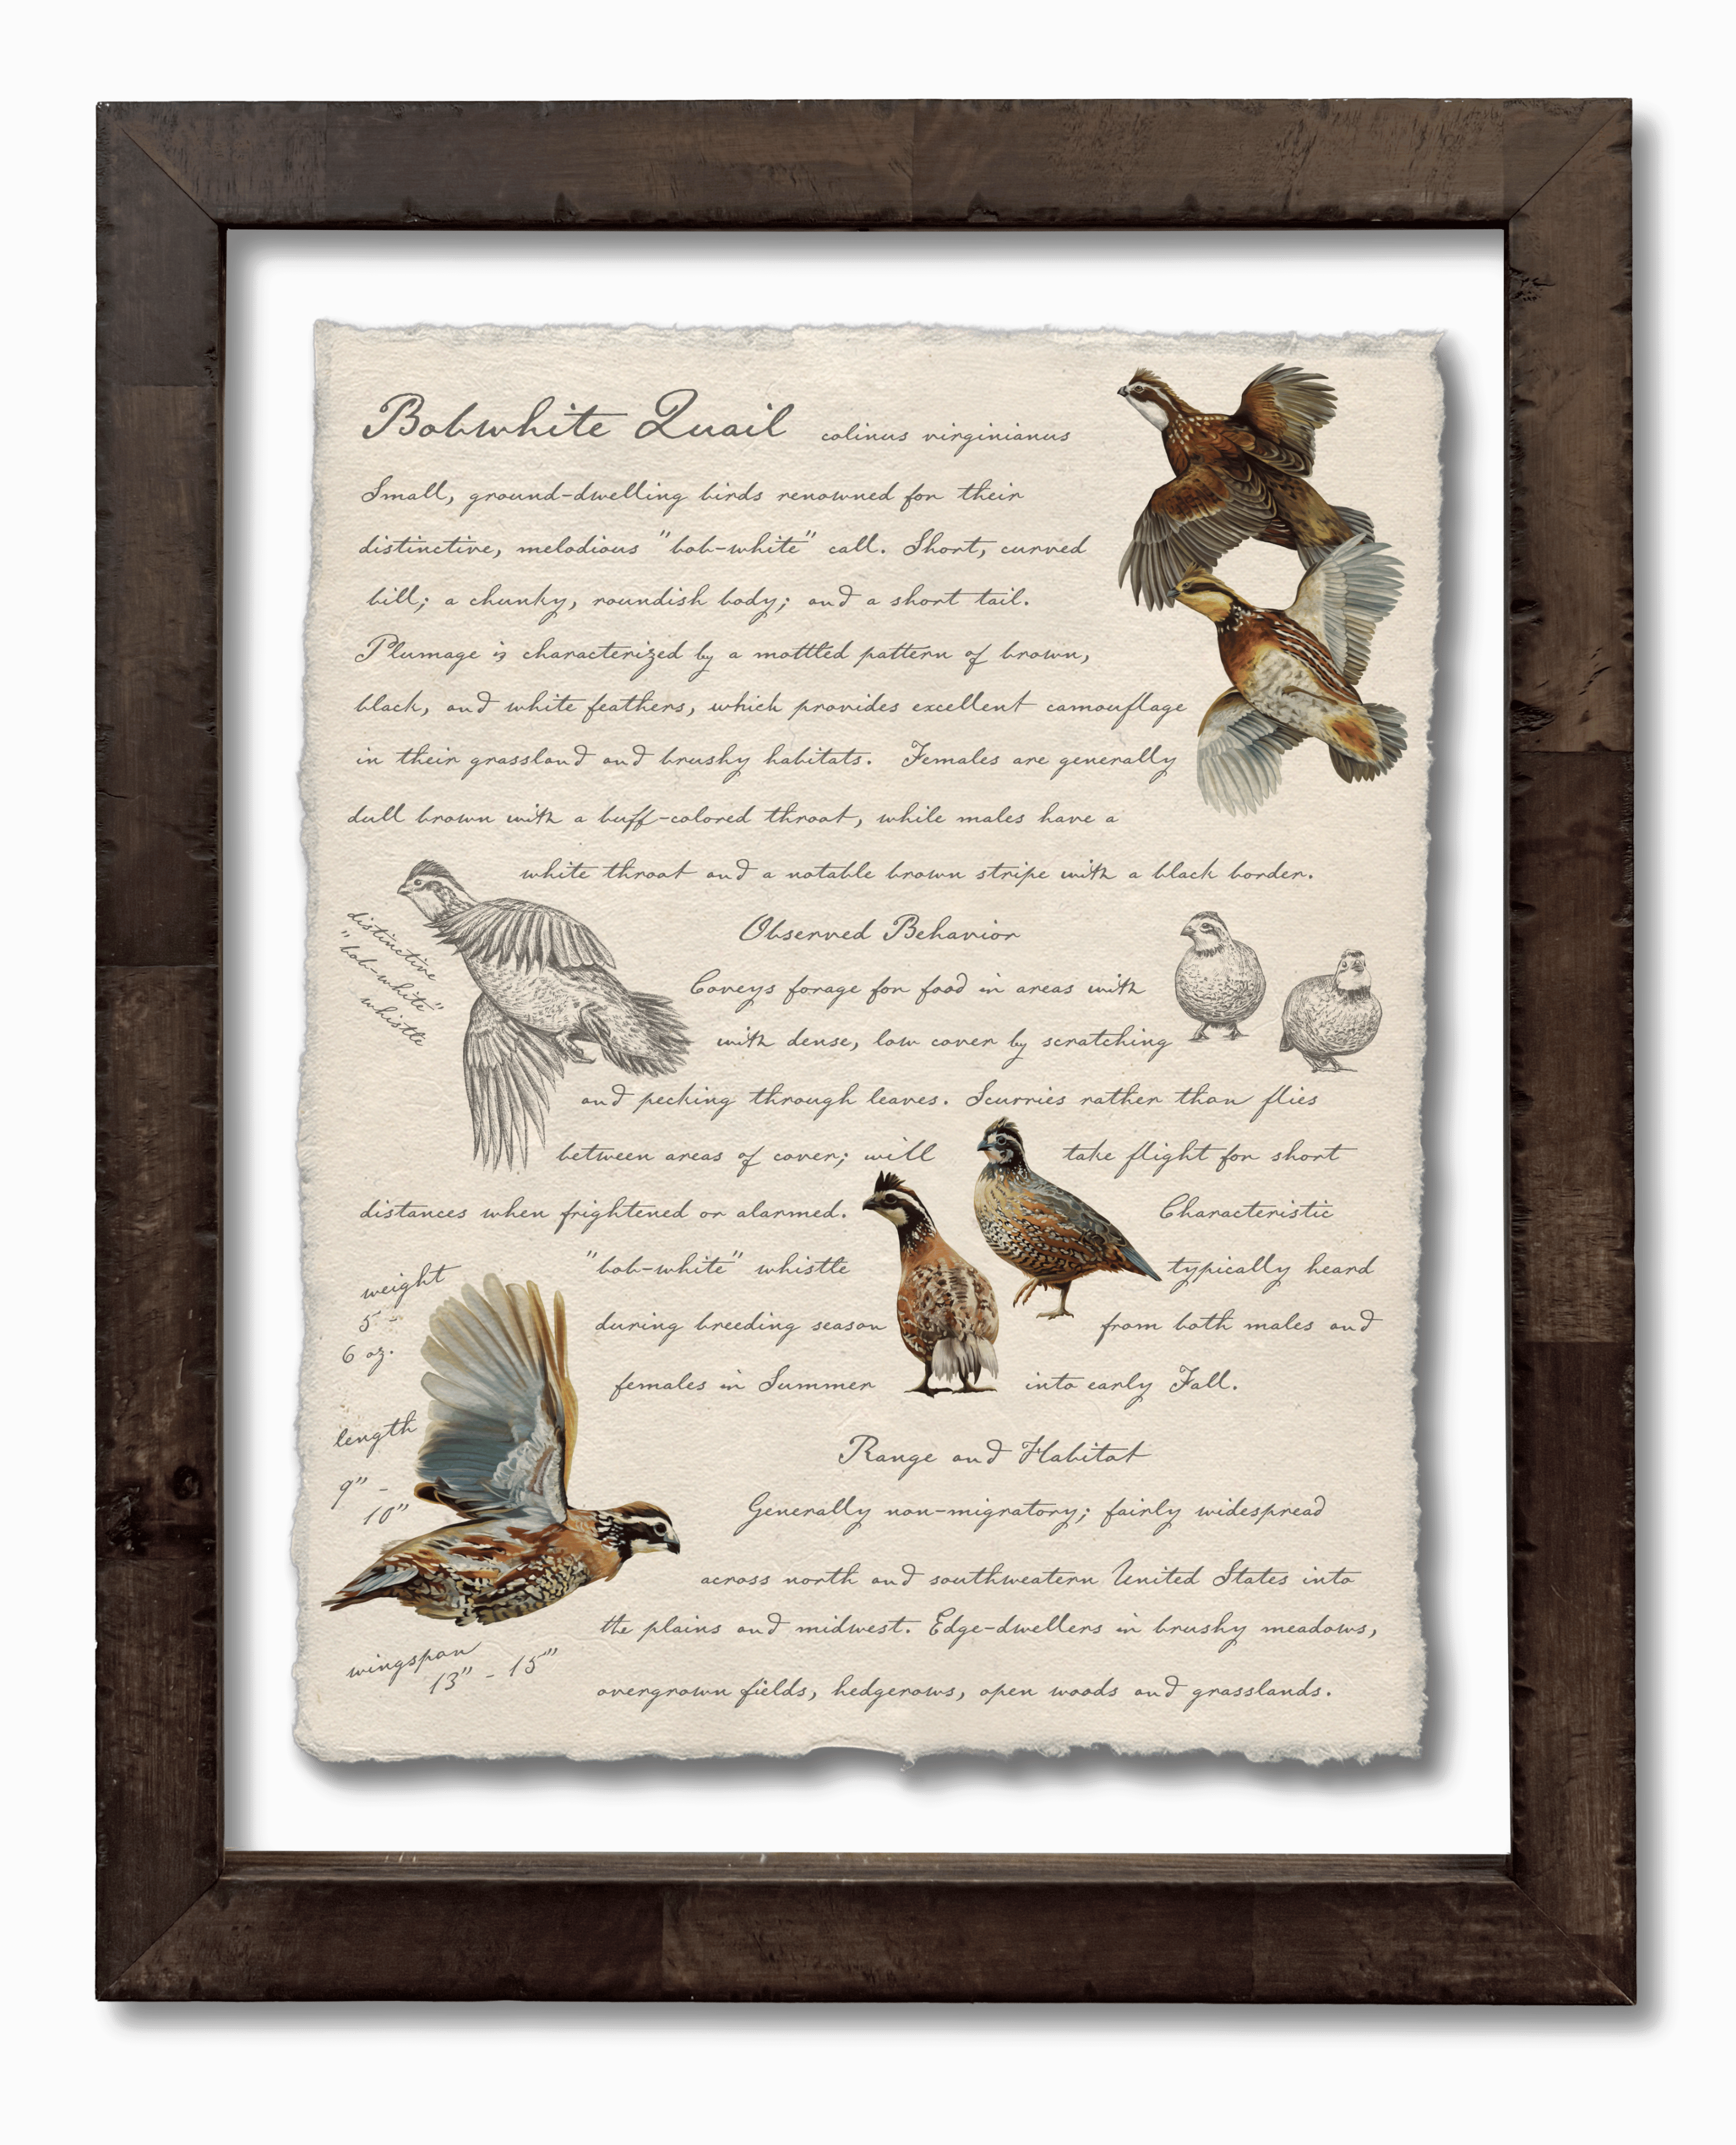 Bobwhite Quail colinus virginianus
Small, ground-dwelling birds renowned for their
distinctive, melodious "bob-white" call. Short, curved
bill; a chunky, roundish body; and a short tail.
Plumage is characterized by a mottled pattern of brown,
black, and white feathers, which provides excellent camouflage
in their grassland and brushy habitats. Females are generally
dull brown with a buff-colored throat, while males have a
white throat and a notable brown stripe with a black border.
distinctive
"bob-white"
whistle
Observed Behavior
Coveys forage for food in areas with
with dense, low cover by scratching
and pecking through leaves. Scurries rather than flies
between areas of cover; will take flight for short
distances when frightened or alarmed. Characteristic
"bob-white" whistle typically heard
during breeding season from both males and
females in Summer into early Fall.
weight
5 -
6 oz.
length
9" -
10"
Range and Habitat
Generally non-migratory; fairly widespread
across north and southweatern United States into
the plains and midwest. Edge-dwellers in brushy meadows,
overgrown fields, hedgerows, open woods and grasslands.
wingspan
13" - 15"